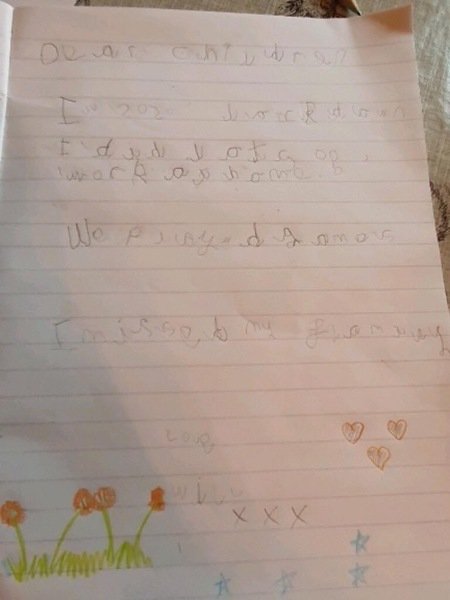 Dear children
In 2020 lorckdown
I did lots of
work at home.
We played games
I missed my
love
will
x x x